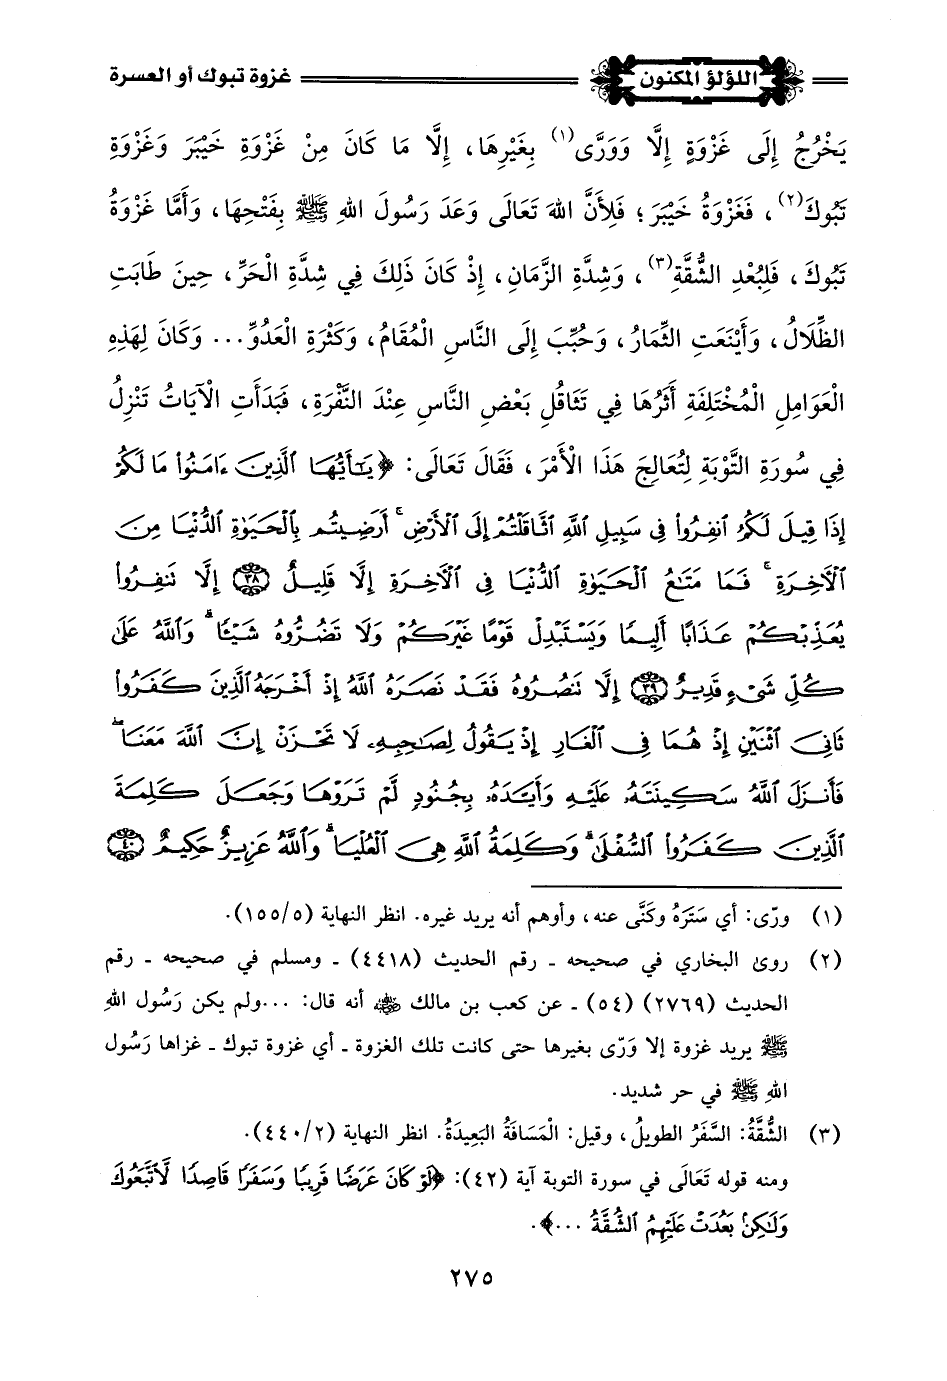 اللؤلؤ المكنون غزوة تبوك أو العسرة
يَخْرُجُ إِلَى غَزْوَةٍ إِلَّا وَوَرَّى(١) بِغَيْرِهَا، إِلَّا مَا كَانَ مِنْ غَزْوَةِ خَيْبَرَ وَغَزْوَةِ
تَبُوكَ(٢)، فَغَزْوَةُ خَيْبَرَ؛ فَلِأَنَّ اللهَ تَعَالَى وَعَدَ رَسُولَ اللهِ ﷺ بِفَتْحِهَا، وَأَمَّا غَزْوَةُ
تَبُوكَ، فَلِبُعْدِ الشُّقَّةِ(٣)، وَشِدَّةِ الزَّمَانِ، إِذْ كَانَ ذَلِكَ فِي شِدَّةِ الْحَرِّ، حِينَ طَابَتِ
الظِّلَالُ، وَأَيْنَعَتِ الثِّمَارُ، وَحُبِّبَ إِلَى النَّاسِ الْمُقَامُ، وَكَثْرَةِ الْعَدُوِّ... وَكَانَ لِهَذِهِ
العَوَامِلِ الْمُخْتَلِفَةِ أَثَرُهَا فِي تَثَاقُلِ بَعْضِ النَّاسِ عِنْدَ النَّفْرَةِ، فَبَدَأَتِ الْآيَاتُ تَنْزِلُ
فِي سُورَةِ التَّوْبَةِ لِتُعَالِجَ هَذَا الْأَمْرَ، فَقَالَ تَعَالَى: ﴿يَـٰٓأَيُّهَا ٱلَّذِينَ ءَامَنُوا۟ مَا لَكُمْ
إِذَا قِيلَ لَكُمُ ٱنفِرُوا۟ فِى سَبِيلِ ٱللَّهِ ٱثَّاقَلْتُمْ إِلَى ٱلْأَرْضِ ۚ أَرَضِيتُم بِٱلْحَيَوٰةِ ٱلدُّنْيَا مِنَ
ٱلْـَٔاخِرَةِ ۚ فَمَا مَتَـٰعُ ٱلْحَيَوٰةِ ٱلدُّنْيَا فِى ٱلْـَٔاخِرَةِ إِلَّا قَلِيلٌ ﴿٣٨﴾ إِلَّا تَنفِرُوا۟
يُعَذِّبْكُمْ عَذَابًا أَلِيمًا وَيَسْتَبْدِلْ قَوْمًا غَيْرَكُمْ وَلَا تَضُرُّوهُ شَيْـًٔا ۗ وَٱللَّهُ عَلَىٰ
كُلِّ شَىْءٍ قَدِيرٌ ﴿٣٩﴾ إِلَّا تَنصُرُوهُ فَقَدْ نَصَرَهُ ٱللَّهُ إِذْ أَخْرَجَهُ ٱلَّذِينَ كَفَرُوا۟
ثَانِىَ ٱثْنَيْنِ إِذْ هُمَا فِى ٱلْغَارِ إِذْ يَقُولُ لِصَـٰحِبِهِۦ لَا تَحْزَنْ إِنَّ ٱللَّهَ مَعَنَا ۖ
فَأَنزَلَ ٱللَّهُ سَكِينَتَهُۥ عَلَيْهِ وَأَيَّدَهُۥ بِجُنُودٍ لَّمْ تَرَوْهَا وَجَعَلَ كَلِمَةَ
ٱلَّذِينَ كَفَرُوا۟ ٱلسُّفْلَىٰ ۗ وَكَلِمَةُ ٱللَّهِ هِىَ ٱلْعُلْيَا ۗ وَٱللَّهُ عَزِيزٌ حَكِيمٌ ﴿٤٠﴾
(١) ورّى: أي سَتَرَهُ وكَنَّى عنه، وأوهم أنه يريد غيره. انظر النهاية (١٥٥/٥).
(٢) روى البخاري في صحيحه ـ رقم الحديث (٤٤١٨) ـ ومسلم في صحيحه ـ رقم
الحديث (٢٧٦٩) (٥٤) ـ عن كعب بن مالك ﵁ أنه قال: ...ولم يكن رَسُول اللهِ
ﷺ يريد غزوة إلا وَرّى بغيرها حتى كانت تلك الغزوة ـ أي غزوة تبوك ـ غزاها رَسُول
اللهِ ﷺ في حر شديد.
(٣) الشُّقَّةُ: السَّفَرُ الطويلُ، وقيل: الْمَسَافَةُ البَعِيدَةُ. انظر النهاية (٤٤٠/٢).
ومنه قوله تَعَالَى في سورة التوبة آية (٤٢): ﴿لَوْ كَانَ عَرَضًا قَرِيبًا وَسَفَرًا قَاصِدًا لَّٱتَّبَعُوكَ
وَلَـٰكِنۢ بَعُدَتْ عَلَيْهِمُ ٱلشُّقَّةُ ...﴾.
٢٧٥